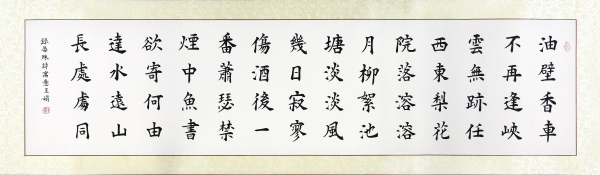 油壁香車
不再逢峽
雲無跡任
西東梨花
院落溶溶
月柳絮池
塘淡淡風
幾日寂寥
傷酒後一
番蕭瑟禁
煙中魚書
欲寄何由
達水遠山
長處處同
錄晏殊詩寓意王娟